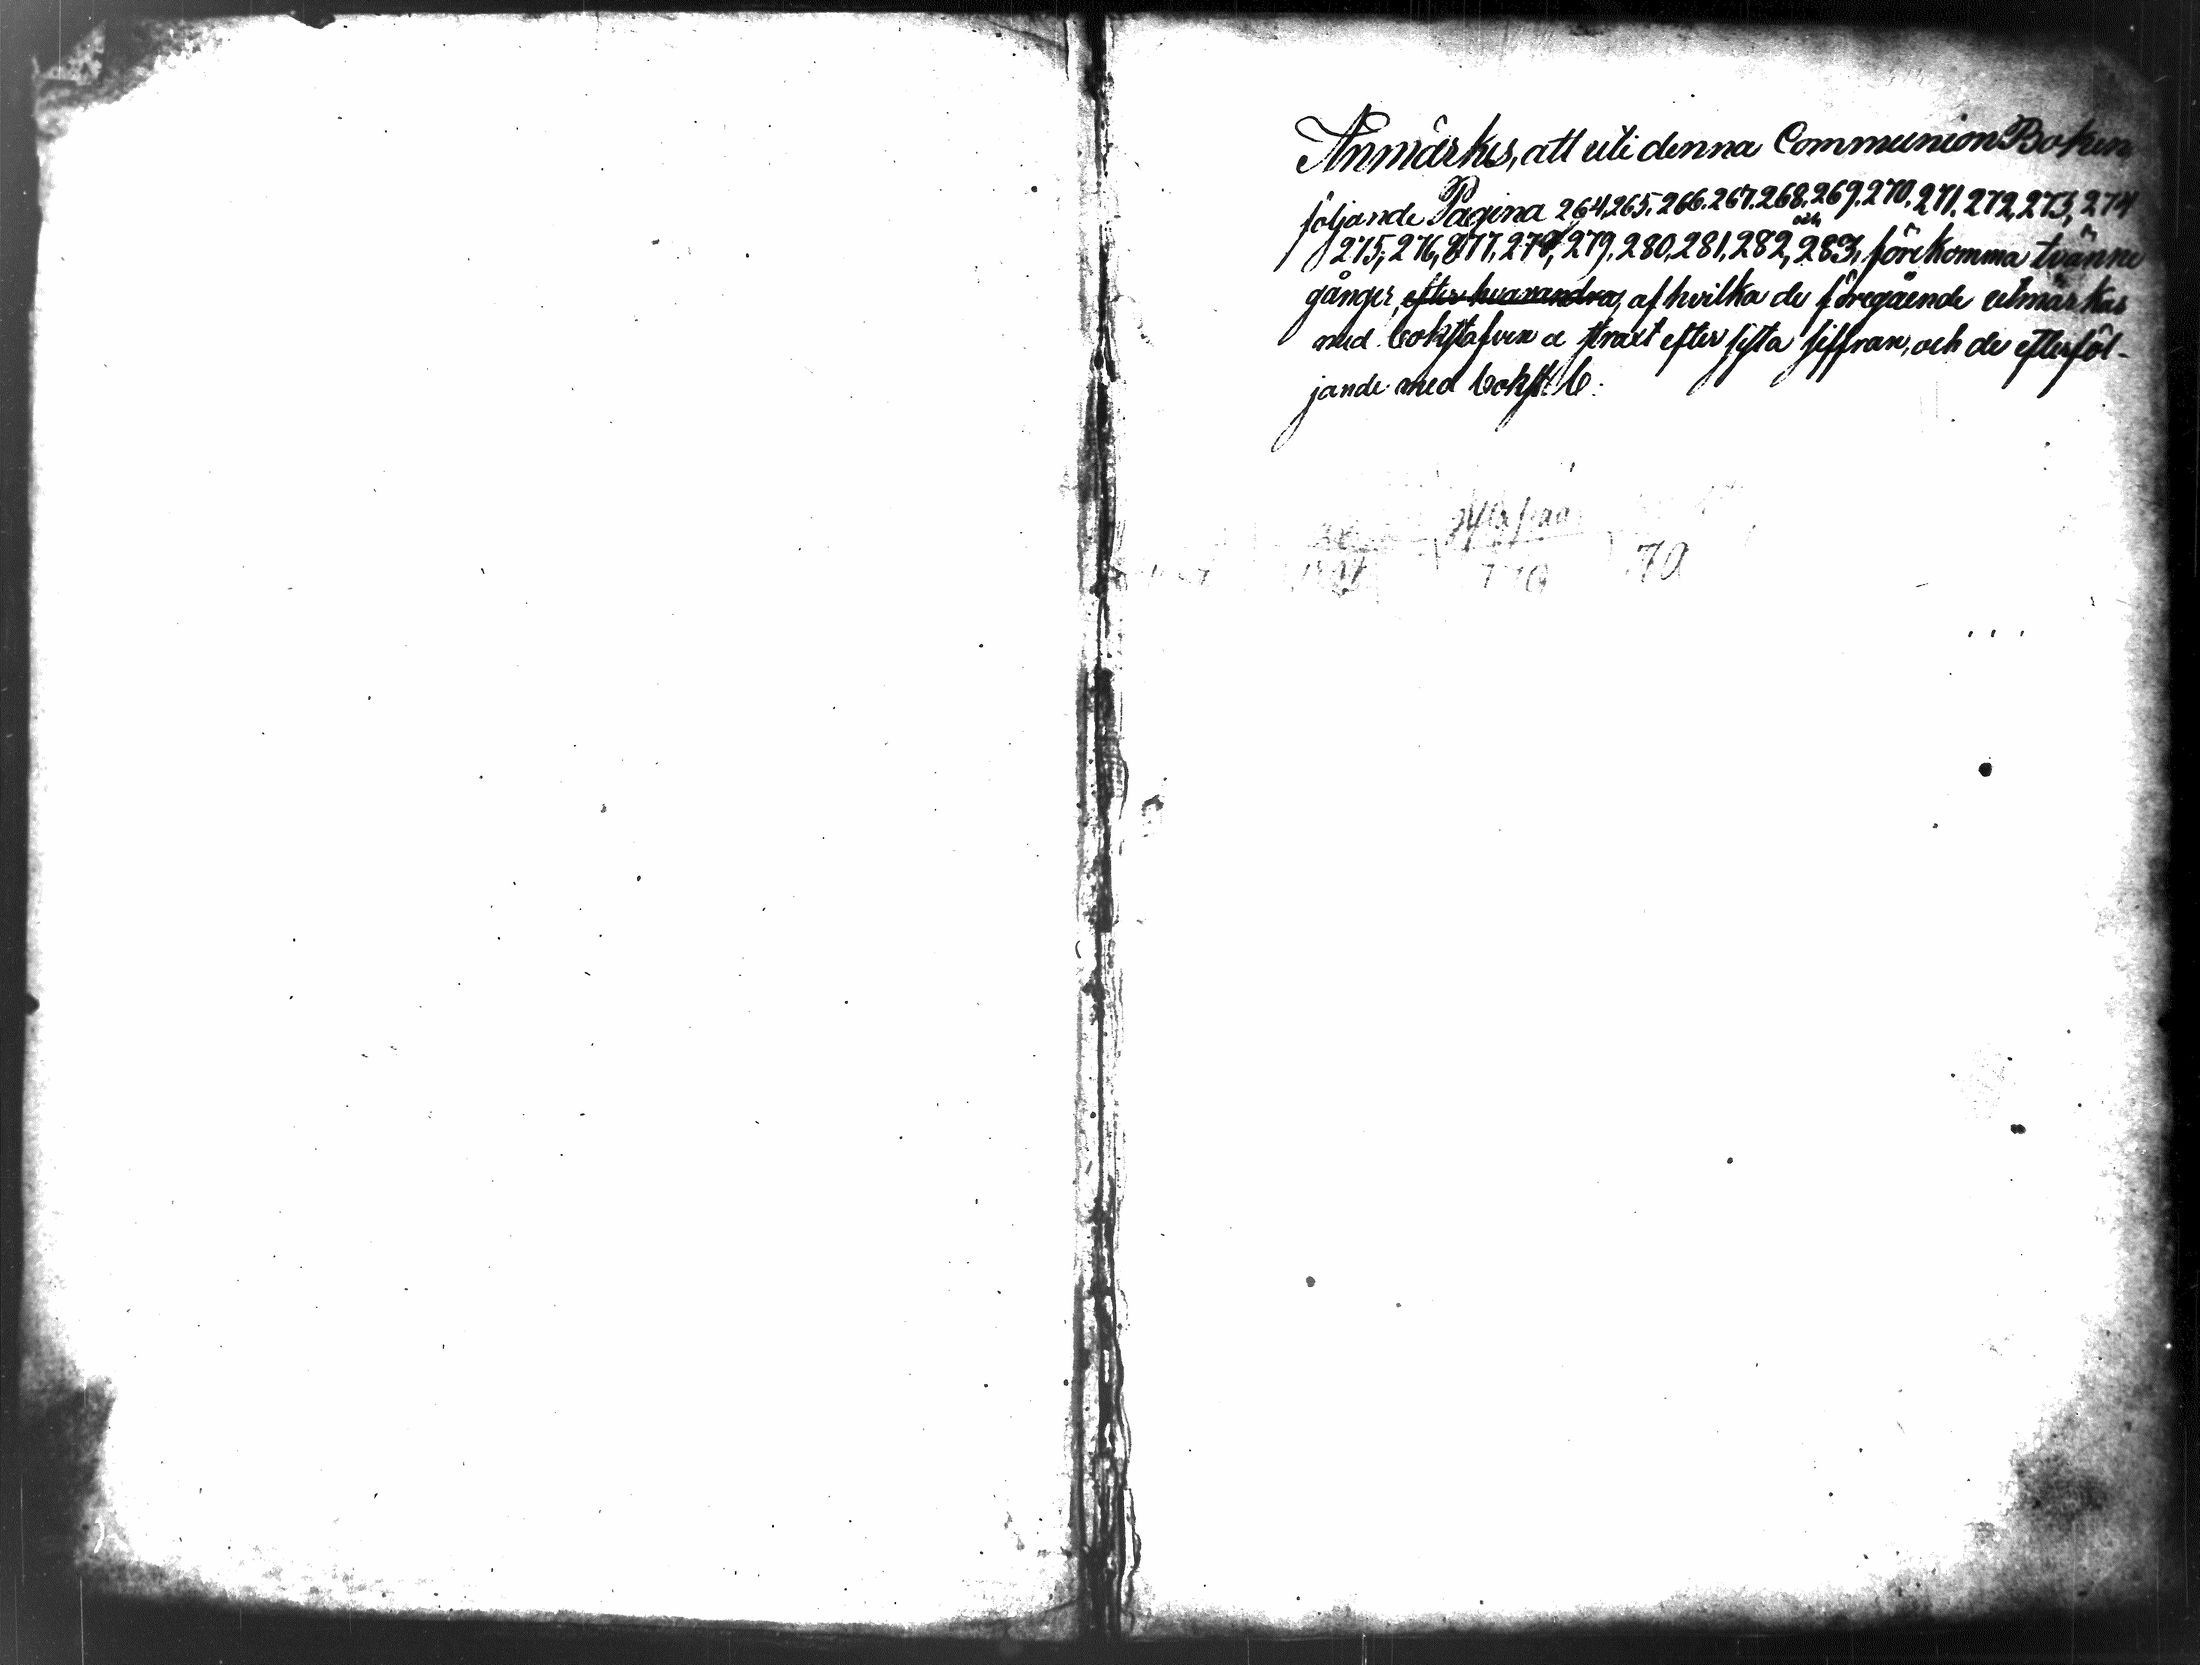 Anmärkes, att uti denna Communion Boken
följande Pagina 264, 265, 266. 267. 268. 269. 270. 271. 272, 273, 274
275, 276, 277, 278, 279, 280, 281, 282, och 283, förekomma tvänne
gånger, efter hvarandra, af hvilka de föregående utmärkas
med bokstafven a straxt efter sista siffran, och de efterföl-
jande med bokst. b.
70